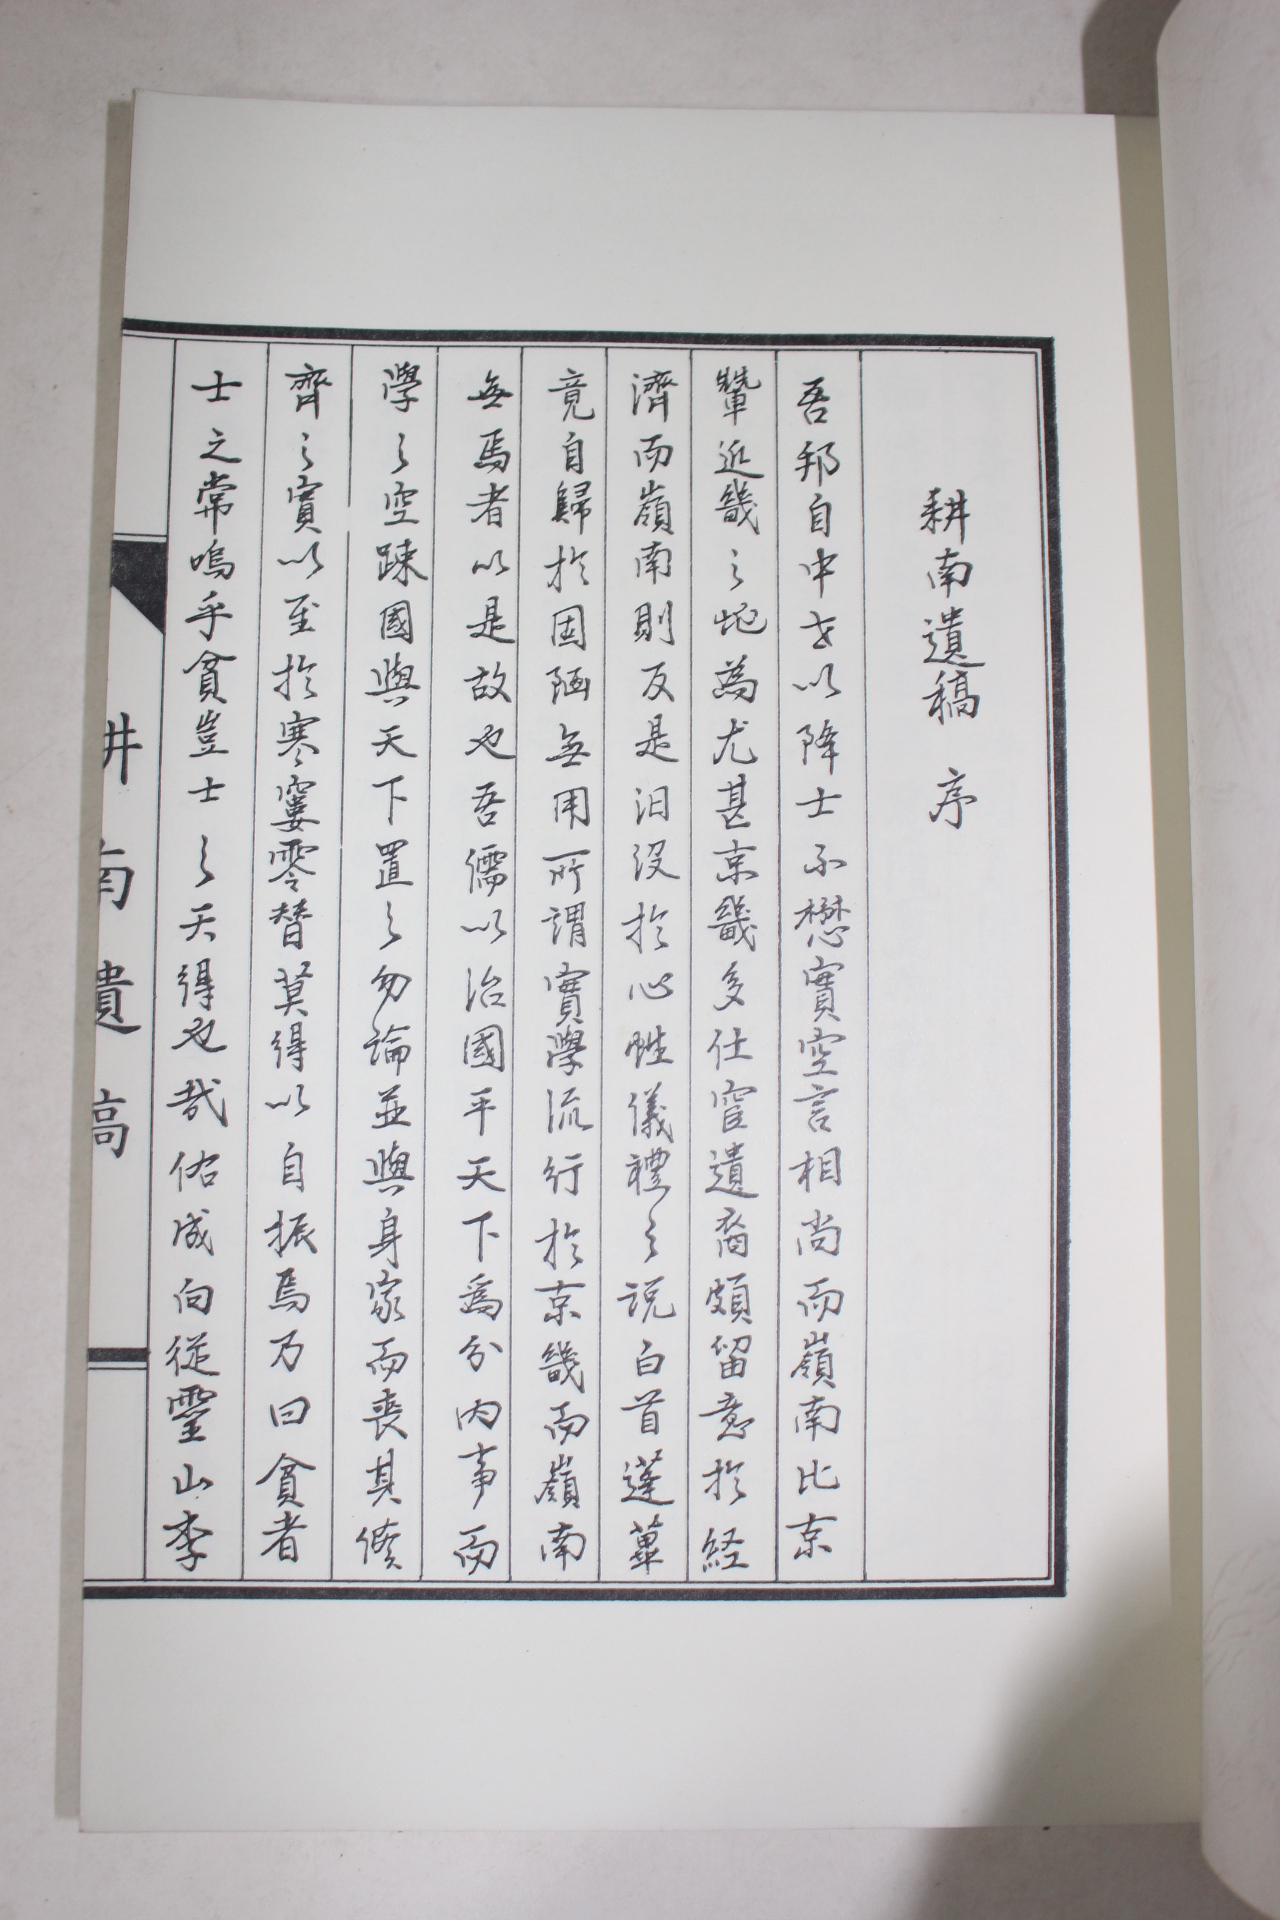 耕南遺稿 序
吾邦自中世以降士不懋實空言相尚而嶺南比京
輦近畿之地為尤甚京畿多仕宦遺裔頗留意於経
濟而嶺南則反是汨没於心性儀禮之説白首蓬蓽
竟自歸於固陋無用所謂實學流行於京畿而嶺南
無焉者以是故也吾儒以治國平天下為分内事而
學之空踈國與天下置之勿論並與身家而喪其修
齊之實以至於寒窶零替莫得以自振焉乃曰貧者
士之常嗚乎貧豈士之天得也哉佑成向従靈山李
耕南遺稿